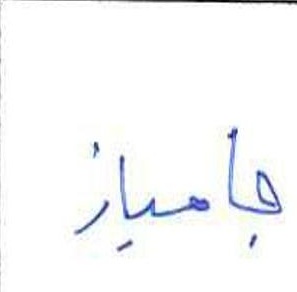 جامیاز